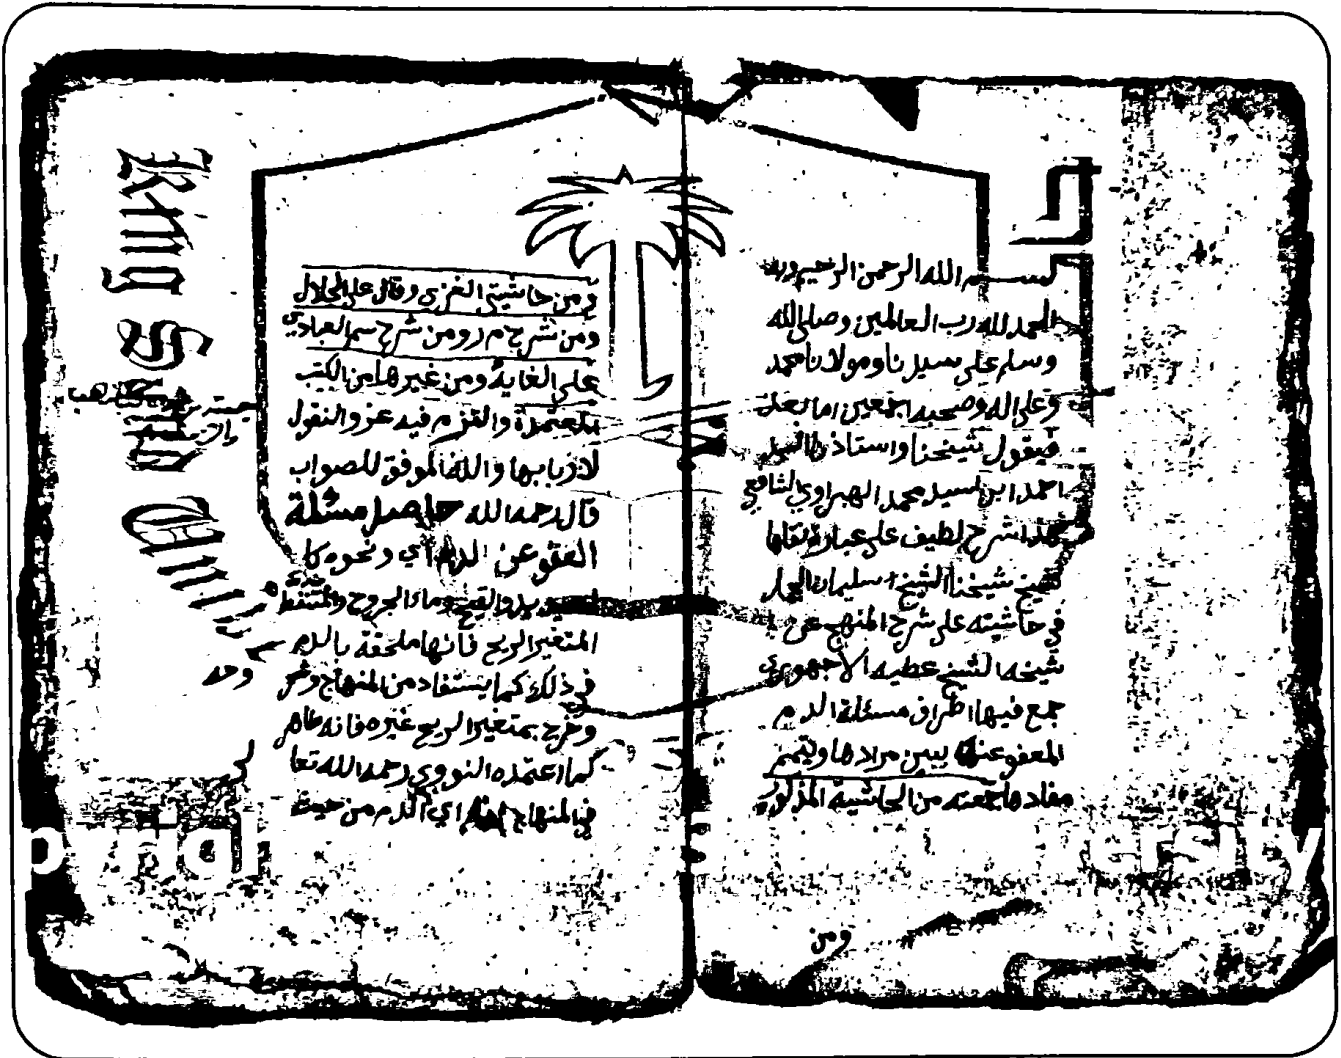 بسم الله الرحمن الرحيم وبه
الحمد لله رب العالمين وصلى الله
وسلم على سيدنا ومولانا محمد
وعلى اله وصحبه اجمعين اما بعد
فيقول شيخنا واستاذنا السيد
احمد ابن السيد محمد الهبراوي الشافعي
هذا شرح لطيف على عبارة نقلها
شيخ شيخنا الشيخ سليمان الجمل
في حاشيته على شرح المنهج عن
شيخه الشيخ عطيه الاجهوري
جمع فيها اطراف مسئلة الدم
المعفو عنها يبين مرادها ويتمم
مفادها جمعته من الحاشية المذكورة
ومن
ومن حاشيتي الغزي وقال على الجلال
ومن شرح م ر ومن شرح سم العبادي
على الغاية ومن غيرها من الكتب
المعتمدة والتزم فيه عزو النقول
لاربابها والله الموفق للصواب
قال رحمه الله حاصل مسئلة
العفو عن الدم اي ونحوه كا
والقيح وماء الجروح والمتنفط
المتغير الريح فانها ملحقة بالدم
في ذلك كما يستفاد من المنهاج وش
وخرج بمتغير الريح غيره فانه طاهر
كما اعتمده النووي رحمه الله تعا
في المنهاج انه اي الدم من حيث
وحه
King Saud
ersity